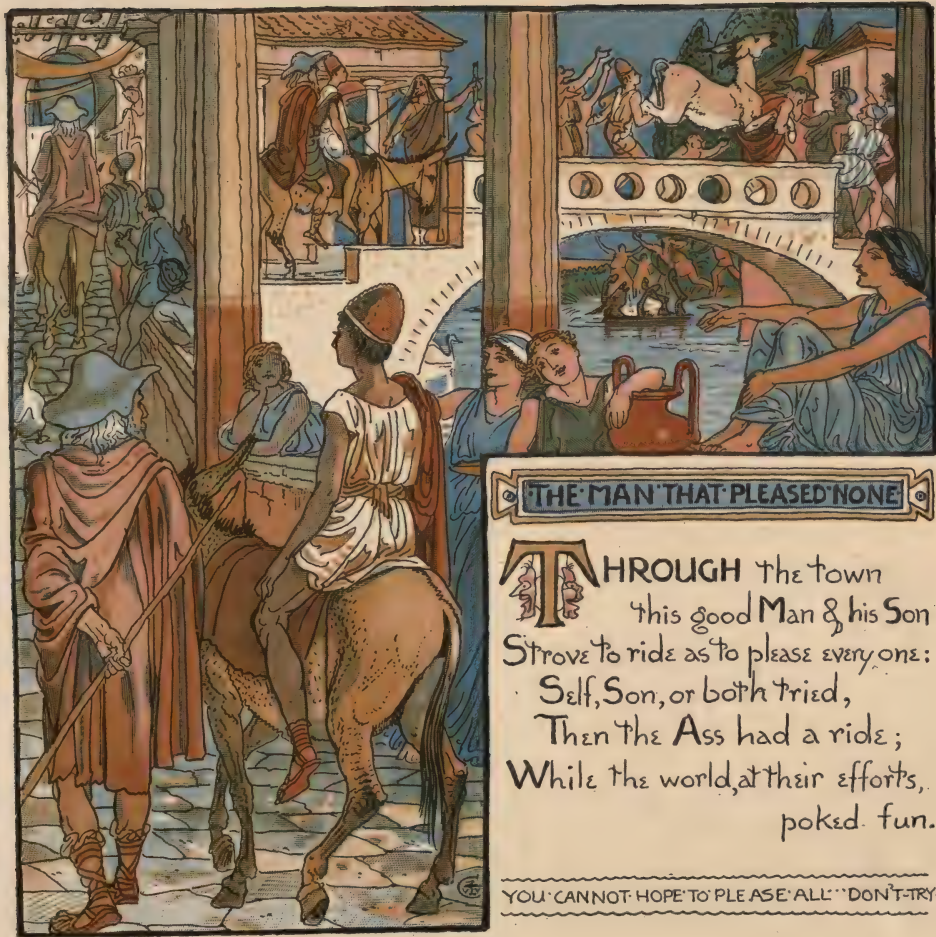 THE·MAN·THAT·PLEASED·NONE
THROUGH the town
this good Man & his Son
Strove to ride as to please everyone:
Self, Son, or both tried,
Then the Ass had a ride;
While the world, at their efforts,
poked fun.
YOU·CANNOT·HOPE·TO·PLEASE·ALL···DON'T·TRY